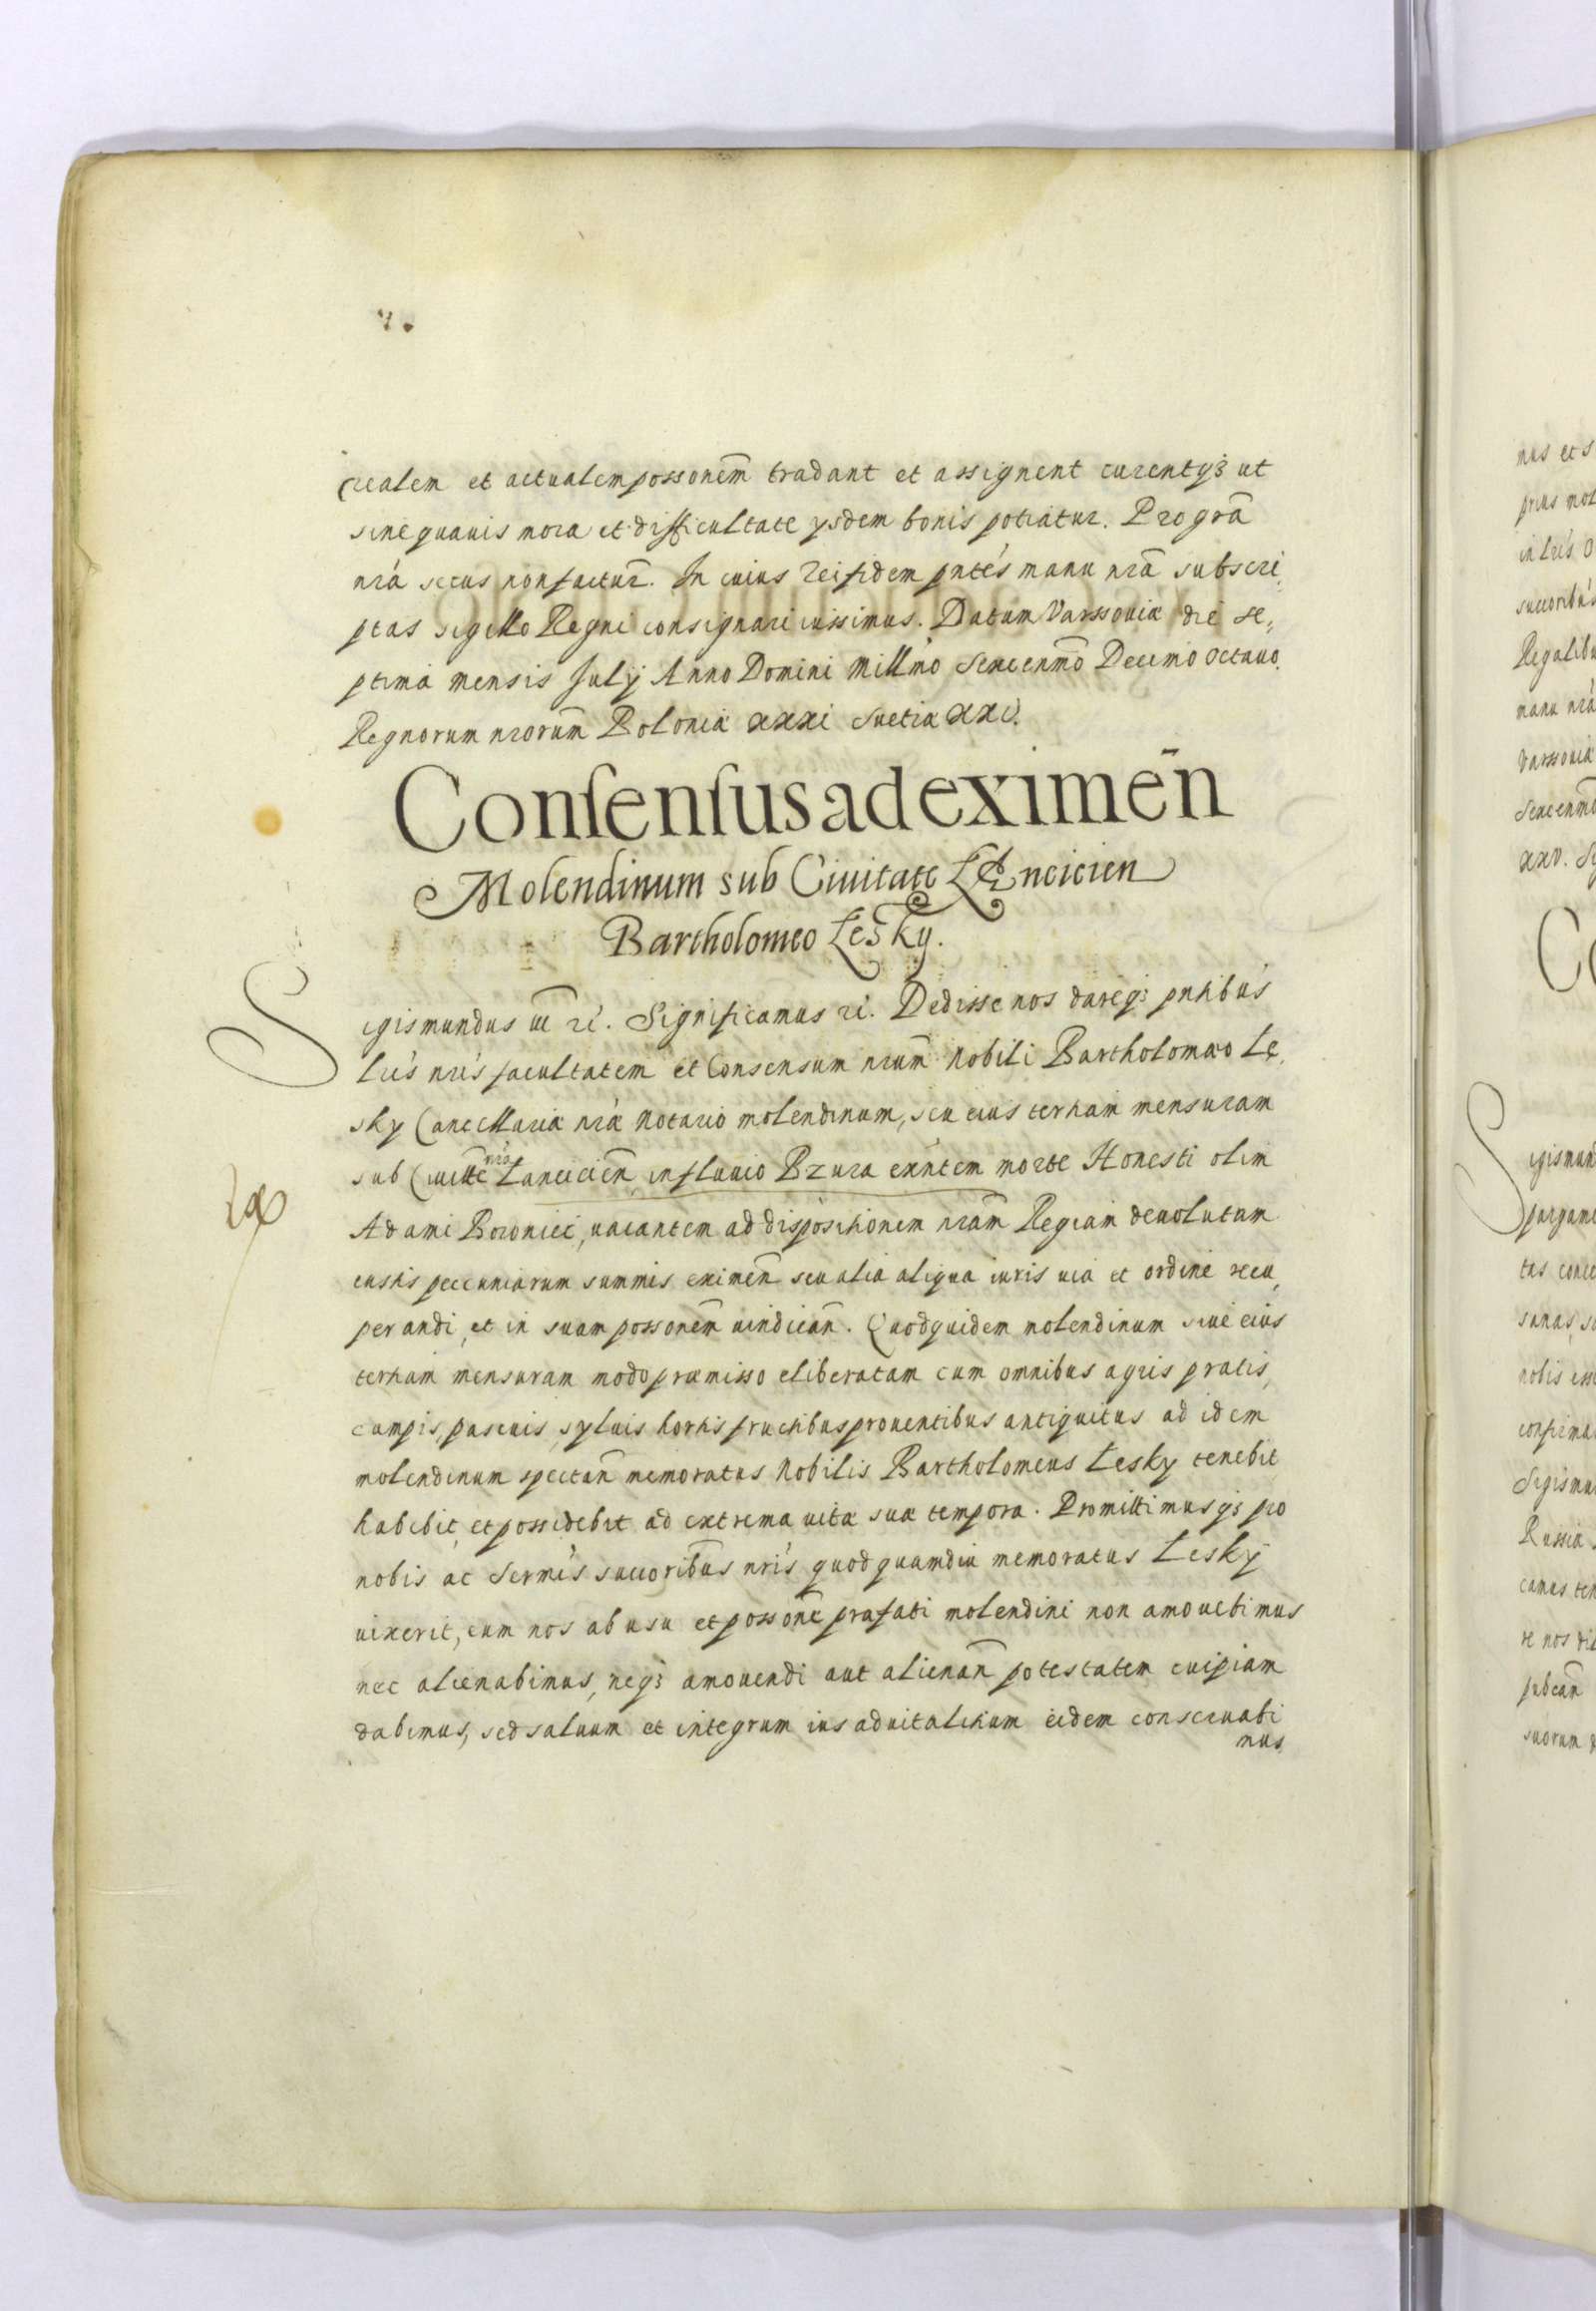 realem et actualem possonem̃ tradant et assignent curentq₃ ut
sine quauis mora et difficultate ysdem bonis potiatur. Pro gr̃a
nrã secus non factur̃. In cuius rei fidem pntes manu nrã subscri
ptas sigillo Regni consignari iussimus. Datum Varssouiæ die se„
ptima mensis July Anno Domini Millm̃o Sexcenm̃o Decimo Octauo.
Regnorum nrorum̃ Poloniæ xxxi Suetiæ xxv.
Conſenſus ad eximen̄
Molendinum sub Ciuitate Lęncicien
Bartholomeo Lesky.
Sigismundus iii rc̃. Significamus rc̃. Dedisse nos dareq₃ pntibus
Lris nris facultatem et Consensum nrum̃ Nobili Bartholomæo Le
sky Cancellariæ nræ Notario molendinum, seu eius tertiam mensuram
sub Ciuitte nra Lancicien̄ in fluuio Bzura exn̄tem morte Honesti olim
Adami Boroniec, uacantem ad dispositionem nram̃ Regiam deuolutam
certis pecuniarum summis eximen̄ seu alia aliqua iuris uia et ordine recu
perandi, et in suam possonem̃ uindican̄. Quodquidem molendinum siue eius
tertiam mensuram modo præmisso eliberatam cum omnibus agris pratis,
campis, pascuis, syluis hortis fructibus prouentibus antiquitus ad idem
molendinum spectan̄ memoratus Nobilis Bartholomeus Lesky tenebit
habebit, et possidebit ad extrema uitæ suæ tempora. Promittimusq₃ pro
nobis ac Sermis succoribus̃ nris quod quamdiu memoratus Lesky
uixerit, eum nos ab usu et possone̴ præfati molendini non amouebimus
nec alienabimus, neq₃ amouendi aut alienan̄ potestatem cuipiam
dabimus, sed saluum et integrum ius aduitalitium eidem conseruabi
mus